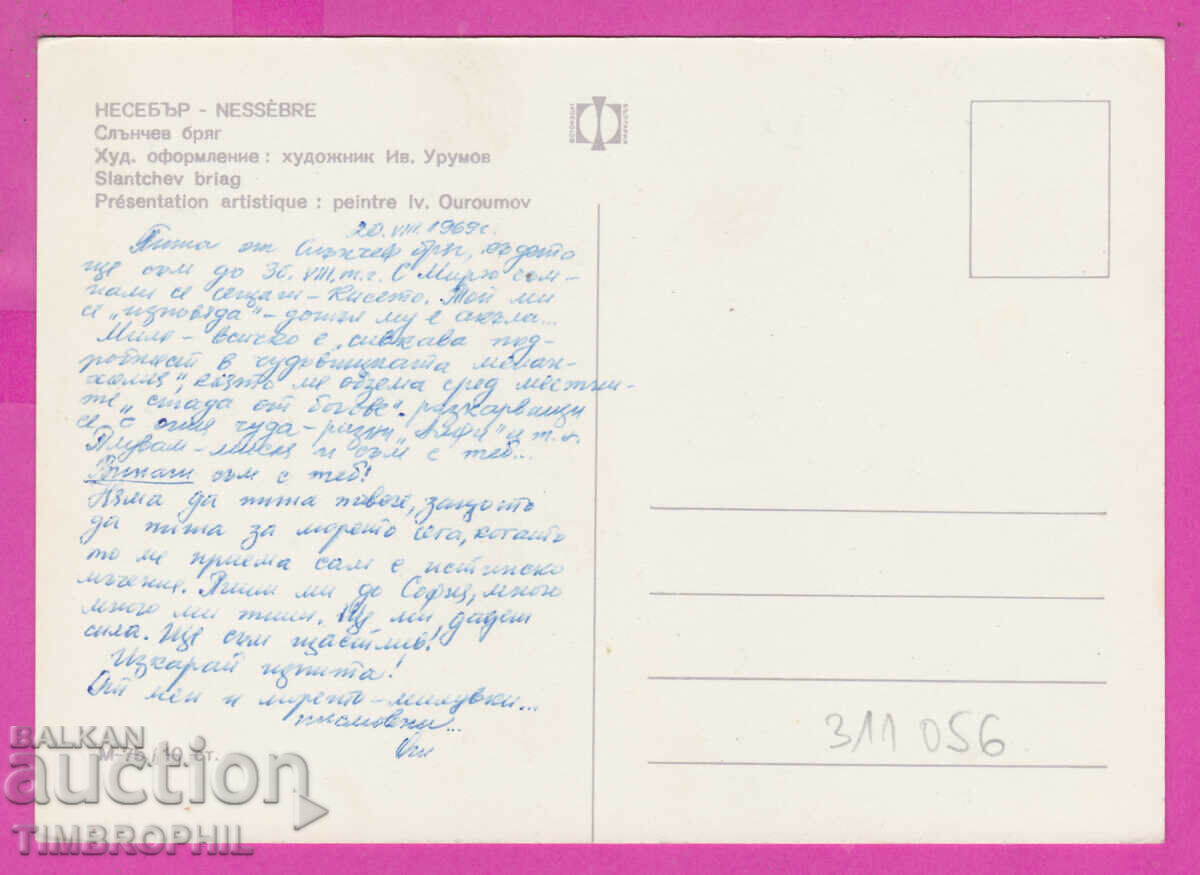 НЕСЕБЪР - NESSÈBRE
Слънчев бряг
Худ. оформление : художник Ив. Урумов
Slantchev briag
Présentation artistique : peintre Iv. Ouroumov
БЪЛГАРИЯ
20.VIII.1969 г.
Пиша от Слънчев бряг, където
ще съм до 30.VIII.т.г. С Мирчо
се сещаш - Кисето. Той ми
се „изповяда" - дошъл му е акъла...
Мило - всичко е „сивкава под-
робност в чудовищната мелан-
холия", която ме обзема сред местни-
те „стада от богове" разкарващи
се с чуда- разни „Алфи" и т.н.
Плувам - мисля и съм с теб...
Винаги съм с теб!
Няма да пиша повече, защото
да пиша за морето сега, когато
то ме приема сам е истинско
мъчение. Пиши ми до София, много
много ми пиши. Ще ми дадеш
сила. Ще съм щастлив!
Изкарай изпита!
От мен и морето - милувки...
писмовни...
М-75 / 10 ст.
311 056
BALKAN
auction
TIMBROPHIL